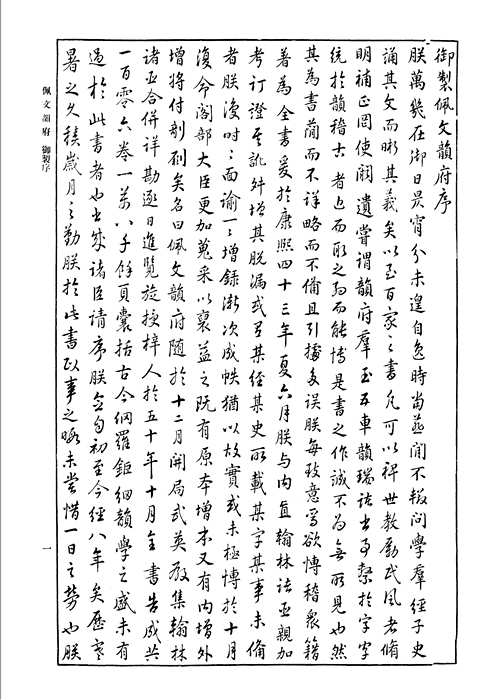 御製佩文韻府序
朕萬幾在御日昃宵分未遑自逸時當燕閒不輟問學羣經子史
誦其文而晰其義矣以至百家之書凡可以裨世教勵民風者脩
明補正罔使闕遺嘗謂韻府羣玉五車韻瑞諸書事繫於字字
統於韻稽古者近而取之約而能博是書之作誠不為無所見也然
其為書簡而不詳略而不備且引據多誤朕每致意焉欲博稽衆籍
著為全書爰於康熙四十三年夏六月朕与內直翰林諸臣親加
考訂證其訛舛增其脱漏或有某經某史所載某字某事未備
者朕復時時面諭一一增錄漸次成帙猶以故實或未極博於十月
復命閣部大臣更加蒐采以裒益之既有原本增本又有內增外
增將付剞劂矣名曰佩文韻府隨於十二月開局武英殿集翰林
諸臣合併詳勘逐日進覽旋授梓人於五十年十月全書告成共
一百零六卷一萬八千餘頁囊括古今網羅鉅細韻學之盛未有
過於此書者也書成諸臣請序朕念自初至今經八年矣歷寒
暑之久積歲月之勤朕於此書政事之暇未嘗惜一日之勞也朕
佩文韻府 御製序
一